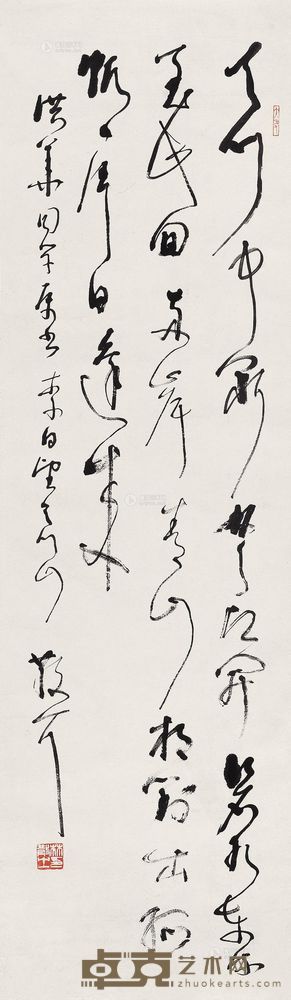 天门中断楚江开碧水东流
至此回两岸青山相对出孤
帆一片日边来
洪華同学属书 李白望天门山 散耳
卓克艺术网
zhuokearts.com